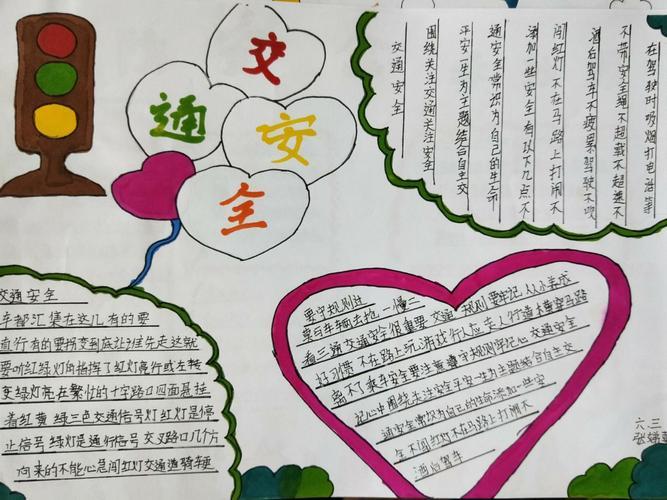 交
通
安
全
交通安全
围绕关注交通关注安全
平安一生为主题结合自主交
通安全常识为自己的生命
添加一些安全有以下几点不
闯红灯不在马路上打闹不
酒后驾车不疲累驾驶不吸
不带安全绳不超载不超速不
在驾驶时吸烟打电话等
交通安全
车都汇集在这儿有的要
直行有的要拐弯到底让谁先走这就
要听红绿灯的指挥了红灯亮行或左转
变绿灯亮在繁忙的十字路口四面悬挂
着红黄绿三色交通信号灯红灯是停
止信号绿灯是通行信号交叉路口几个方
向来的不能心急闯红灯交通道骑车
要守规则过
票与车辆去抢一慢二
看三通交通安全很重要交通规则要牢记从小养成
好习惯不在路上玩游戏行人应走人行道横穿马路
离不了乘车安全要注意遵守规则牢记心交通安全
记心中围绕关注安全平安一生为主题结合自主交
通安全常识为自己的生命添加一些安
全不闯红灯不在马路上打闹不
酒后驾车
六三
张